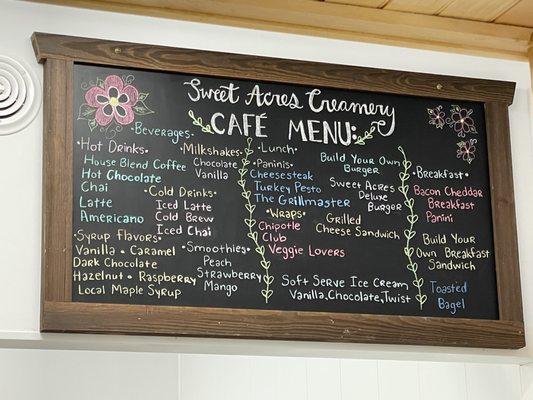 Sweet Acres Creamery
CAFÉ MENU:
Beverages
•Hot Drinks•
House Blend Coffee
Hot Chocolate
Chai
Latte
Americano
•Syrup Flavors•
Vanilla • Caramel
Dark Chocolate
Hazelnut • Raspberry
Local Maple Syrup
•Milkshakes•
Chocolate
Vanilla
•Cold Drinks•
Iced Latte
Cold Brew
Iced Chai
•Smoothies•
Peach
Strawberry
Mango
•Lunch•
•Paninis•
Cheesesteak
Turkey Pesto
The Grillmaster
•Wraps•
Chipotle
Club
Veggie Lovers
Build Your Own
Burger
Sweet Acres
Deluxe
Burger
Grilled
Cheese Sandwich
Soft Serve Ice Cream
Vanilla, Chocolate, Twist
•Breakfast•
Bacon Cheddar
Breakfast
Panini
Build Your
Own Breakfast
Sandwich
Toasted
Bagel